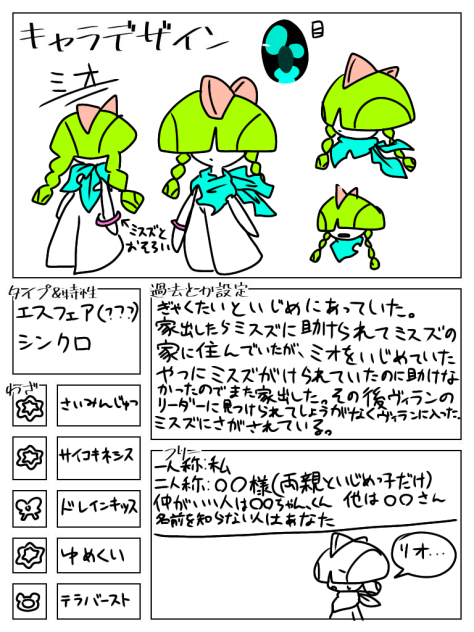 キャラデザイン
ミオ
ミスズと
おそろい
タイプ&特性
エスフェア(???)
シンクロ
過去とか設定
ぎゃくたいといじめにあっていた。
家出したらミスズに助けられてミスズの
家に住んでいたが、ミオをいじめていた
やつにミスズがけられていたのに助けな
かったのでまた家出した。その後ヴィランの
リーダーに見つけられてしょうがなくヴィランに入った。
ミスズにさがされている。
わざ
さいみんじゅつ
サイコキネシス
ドレインキッス
ゆめくい
テラバースト
フリー
一人称:私
二人称:〇〇様(両親といじめっ子だけ)
仲がいい人は〇〇ちゃん、くん 他は〇〇さん
名前を知らない人はあなた
リオ…